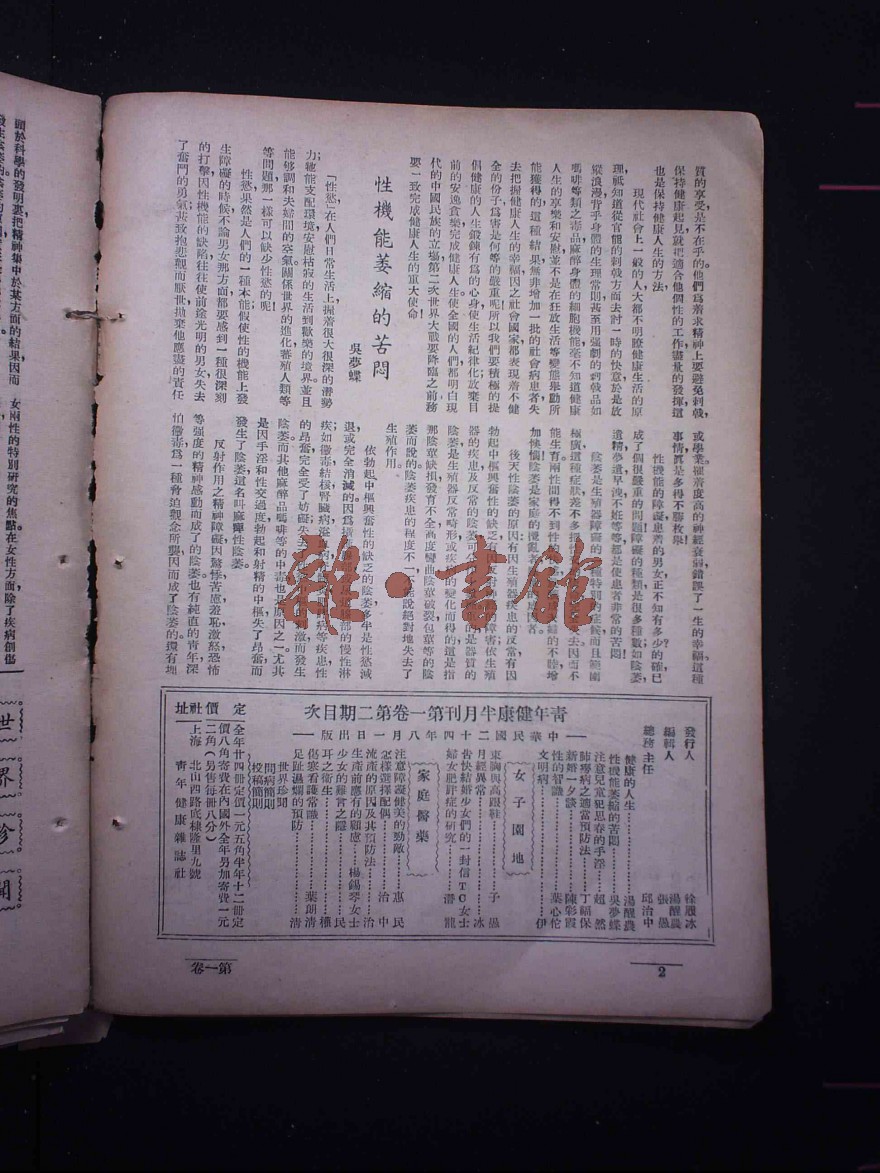 質的享受是不在乎的。他們爲着求精神上要避免刺戟，
保持健康起見就把適合他個性的工作盡量的發揮這
也是保持健康人生的方法，
現代社會上一般的人大都不明瞭健康生活的原
理祇知道從官能的刺戟方面去討一時的快意於是放
縱浪漫背乎身體的生理常則甚至用强劇的刺戟品如
嗎啡等類之毒品麻醉身體的細胞機能毫不知道健康
人生的享樂和安慰並不是在狂放生活等變態舉動所
能獲得的這種結果無非增加一批的社會病患者失
去把握健康人生的幸福因之社會國家都表現着不健
全的份子爲害是何等的嚴重呢所以我們要積極的提
倡健康的人生鍛鍊有爲的心身使生活紀律化放棄目
前的安逸貪樂完成健康人生使全國的人們都明白現
代的中國民族的立場第二次世界大戰要降臨之前務
要一致完成健康人生的重大使命！
性機能萎縮的苦悶
吳夢蝶
「性慾」在人們日常生活上，握着很大很深的潛勢
力；牠能支配環境安慰枯寂的生活到歡樂的境界，並且
能够調和夫婦間的空氣關係世界的進化蕃殖人類等
等問題那一樣可以缺少性慾的呢！
性慾果然是人們的一種本能假使性的機能上發
生障礙的時候不論男女那方面都要感到一種很深刻
的打擊因性機能的缺陷往往使前途光明的男女失去
了奮鬥的勇氣甚致抱悲觀而厭世拋棄他應盡的責任
或學業福着度高的神經衰弱錯誤了一生的幸福這種
事情眞是多得不勝枚舉
性機能的障礙患着的男女正不知有多少？的確已
成了個很嚴重的問題障礙的種類是很多種數如陰萎
遺精夢遺早洩不姙等等都是使患者非常的苦悶！
陰萎是生殖器障礙的
特別的症候而且範圍
極廣這種症狀差不多
去因而不
能生育。兩性間得不到性
的不睦增
加懊惱！陰萎是家庭的攪亂者
成因者。
後天性陰萎的原因：有因生殖器疾患的反常有因
勃起中樞興奮性的缺乏有
障害依生殖
器的疾患及反常的陰萎可分
的是器質的
陰萎是生殖器反常畸形或疾
的變化而得的這是指
那陰莖缺損發育不全高度彎曲陰莖破裂包莖等的陰
萎而說的陰萎疾患的程度不一
能說絕對地失去了
生殖作用。
依勃起中樞興奮性的缺乏的陰萎多半是性慾減
退或完全消滅的因爲
部的慢性淋
疾如黴毒結核腎臟病
病等疾患性
的昻奮完全受了妨礙失去
刺激而發生
陰萎而其他麻醉品嗎啡等的中毒也是成因之一。尤其
是因手淫和性交過度勃起和射精的中樞失了昻奮而
發生了陰萎這名叫麻痺性陰萎。
反射作用之精神障礙因驚悸苦慮羞恥，激怒恐怖
等强度的精神感動而成了的陰萎。也有純直的青年深
怕黴毒爲一種脅迫觀念所襲因而成了陰萎的。還有埋
頭於科學的發明裏把精神集中於某方面的結果因而
女兩性的特別研究的焦點在女性方面除了疾病創傷
世
界
珍
聞
青年健康半月刊第一卷第二期目次
中華民國二十四年八月一日出版
發行人 徐履冰
編輯人 湯醒農
張愚
總務主任 邱治中
健康的人生 湯醒農
性機能萎縮的苦悶 吳夢蝶
注意兒童犯思春的手淫 超然
肺癆病之適當預防法 丁福保
新婚一夕談 陳彩霞
性的智識 葉心佗
文明病 伊
女子園地
束胸與高跟鞋 子愚
月經異常 冰
告快結婚少女們的一封信 TC女士
婦女肥胖症的研究 潛龍
家庭醫藥
注意障礙健美的勁敵 惠民
怎樣選擇配偶 治中
流產的原因及其預防法 治
生產前應有的顧慮 楊錫琴女士
少女的難言之隱 民
耳之衛生
傷寒看護常識 葉朗清
足趾濕爛的預防 清
世界珍聞
問病簡則
投稿簡則
定價
全年廿四冊定價一元五角半年十二冊定
價八角寄費在內國外全年另加寄費一元
二角（另售每冊八分）
社址
上海北山西路底棣隆里九號
青年健康雜誌社
第一卷
2
雜·書館